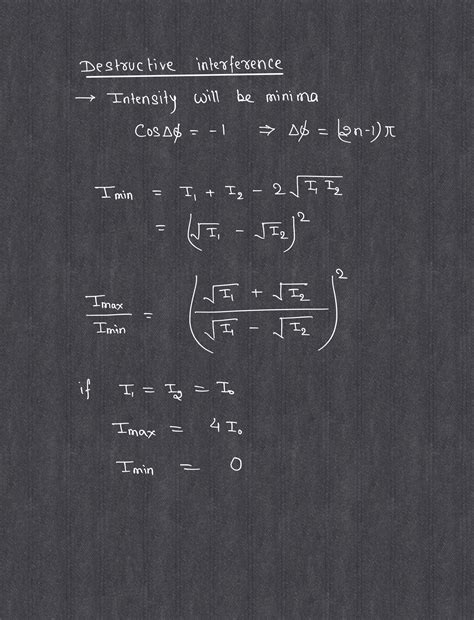 Destructive interference
→ Intensity will be minima
CosΔϕ = -1 ⇒ Δϕ = (2n-1)π
I min = I₁ + I₂ - 2√(I₁ I₂)
= (√I₁ - √I₂)²
Imax / Imin = ((√I₁ + √I₂) / (√I₁ - √I₂))²
if I₁ = I₂ = I₀
Imax = 4I₀
Imin = 0